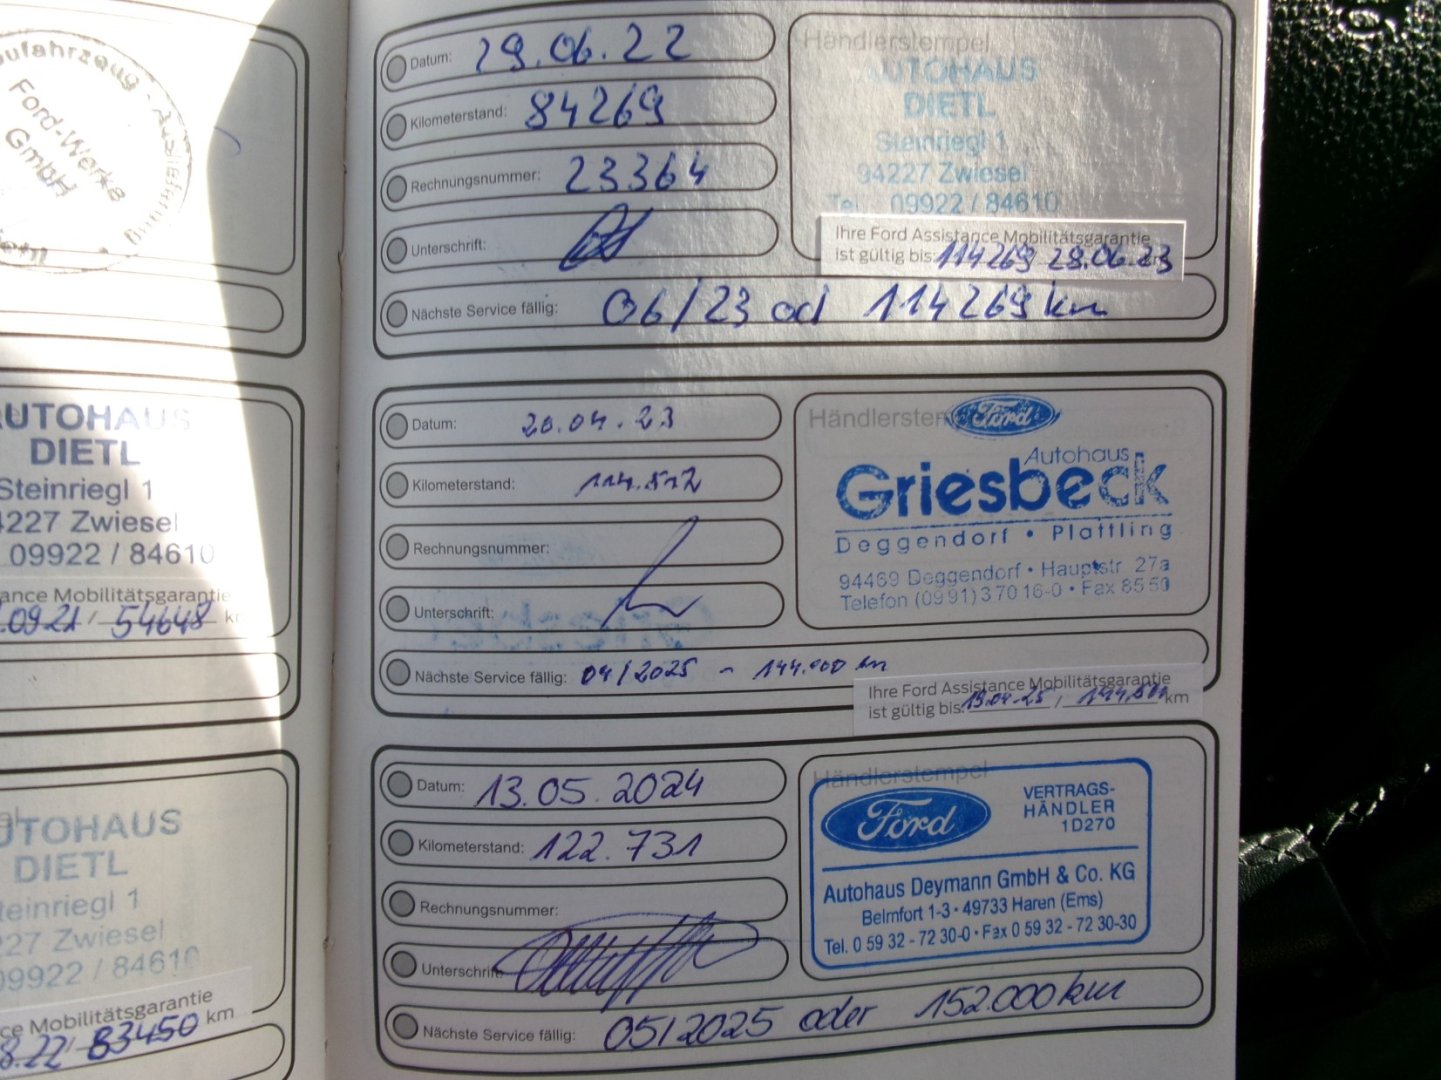 Neufahrzeug - Auslieferung
Ford-Werke
GmbH
AUTOHAUS
DIETL
Steinriegl 1
94227 Zwiesel
09922 / 84610
Mobilitätsgarantie
.09.21 / 54648 km
AUTOHAUS
DIETL
Steinriegl 1
94227 Zwiesel
09922 / 84610
Mobilitätsgarantie
8.22 83450 km
Datum: 29.06.22
Kilometerstand: 84269
Rechnungsnummer: 23364
Unterschrift:
Nächste Service fällig: 06/23 od 114269 km
Händlerstempel
AUTOHAUS
DIETL
Steinriegl 1
94227 Zwiesel
Tel. 09922 / 84610
Ihre Ford Assistance Mobilitätsgarantie
ist gültig bis: 114269 29.06.23
Datum: 20.04.23
Kilometerstand: 114.512
Rechnungsnummer:
Unterschrift:
Nächste Service fällig: 04/2025 - 144.000 km
Händlerstem
Ford
Autohaus
Griesbeck
Deggendorf • Plattling
94469 Deggendorf • Hauptstr. 27a
Telefon (0991) 37016-0 • Fax 8550
Ihre Ford Assistance Mobilitätsgarantie
ist gültig bis: 19.04.25 / km
Datum: 13.05.2024
Kilometerstand: 122.731
Rechnungsnummer:
Unterschrift:
Nächste Service fällig: 05/2025 oder 152.000 km
Händlerstempel
Ford
VERTRAGS-
HÄNDLER
1D270
Autohaus Deymann GmbH & Co. KG
Belmfort 1-3 · 49733 Haren (Ems)
Tel. 0 59 32 - 72 30-0 · Fax 0 59 32 - 72 30-30